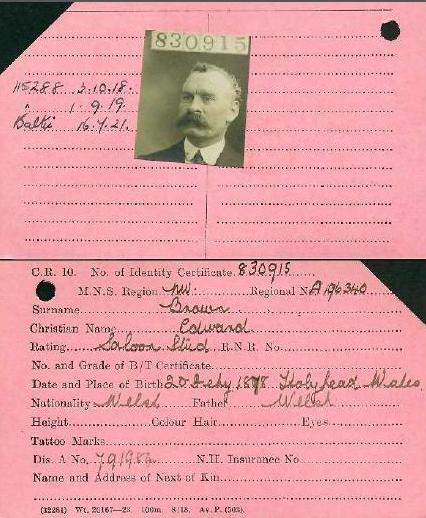 830915
HS288 3.10.18.
" 1.9.19.
Baltic 16.7.21.
C.R. 10. No. of Identity Certificate 830915
M.N.S. Region NW Regional No A 196340
Surname Brown
Christian Name Edward
Rating Saloon Stwd R.N.R. No.
No. and Grade of B/T Certificate
Date and Place of Birth 20 1878 Holyhead Wales.
Nationality Welsh Father Welsh
Height Colour Hair Eyes
Tattoo Marks
Dis. A No. N.H. Insurance No
Name and Address of Next of Kin
(12281) Wt. 26167—23. 100m. 8/18. Av. P. (503).